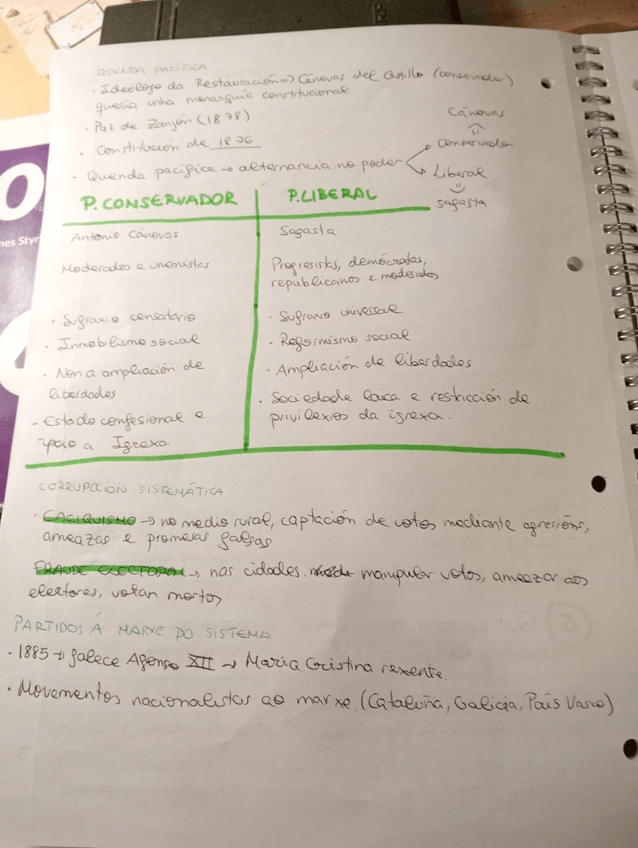 QUENDA PACÍFICA
· Ideólogo da Restauración → Cánovas del Castillo (conservador)
quería unha monarquía constitucional
· Paz de Zanjón (1878)
· Constitución de 1876
Cánovas
· Quenda pacífica → alternancia no poder
Conservador
Liberal
Sagasta
P. CONSERVADOR
Antonio Cánovas
Moderados e unionistas
· Sufraxio censatario
· Inmobilismo social
· Non a ampliación de
liberdades
· Estado confesional e
apoio a Igrexa
P. LIBERAL
Sagasta
Progresistas, demócratas,
republicanos e moderados
· Sufraxio universal
· Reformismo social
· Ampliación de liberdades
· Sociedade laica e restricción de
privilexios da igrexa.
CORRUPCIÓN SISTEMÁTICA
· CACIQUISMO → no medio rural, captación de votos mediante agresións,
ameazas e promesas falsas
FRAUDE ELECTORAL → nas cidades. manipular votos, ameazar aos
electores, votan mortos
PARTIDOS Á MARXE DO SISTEMA
· 1885 → falece Afonso XII → María Cristina rexente.
· Movementos nacionalistas ao marxe. (Cataluña, Galicia, País Vasco)
O
mes Styr